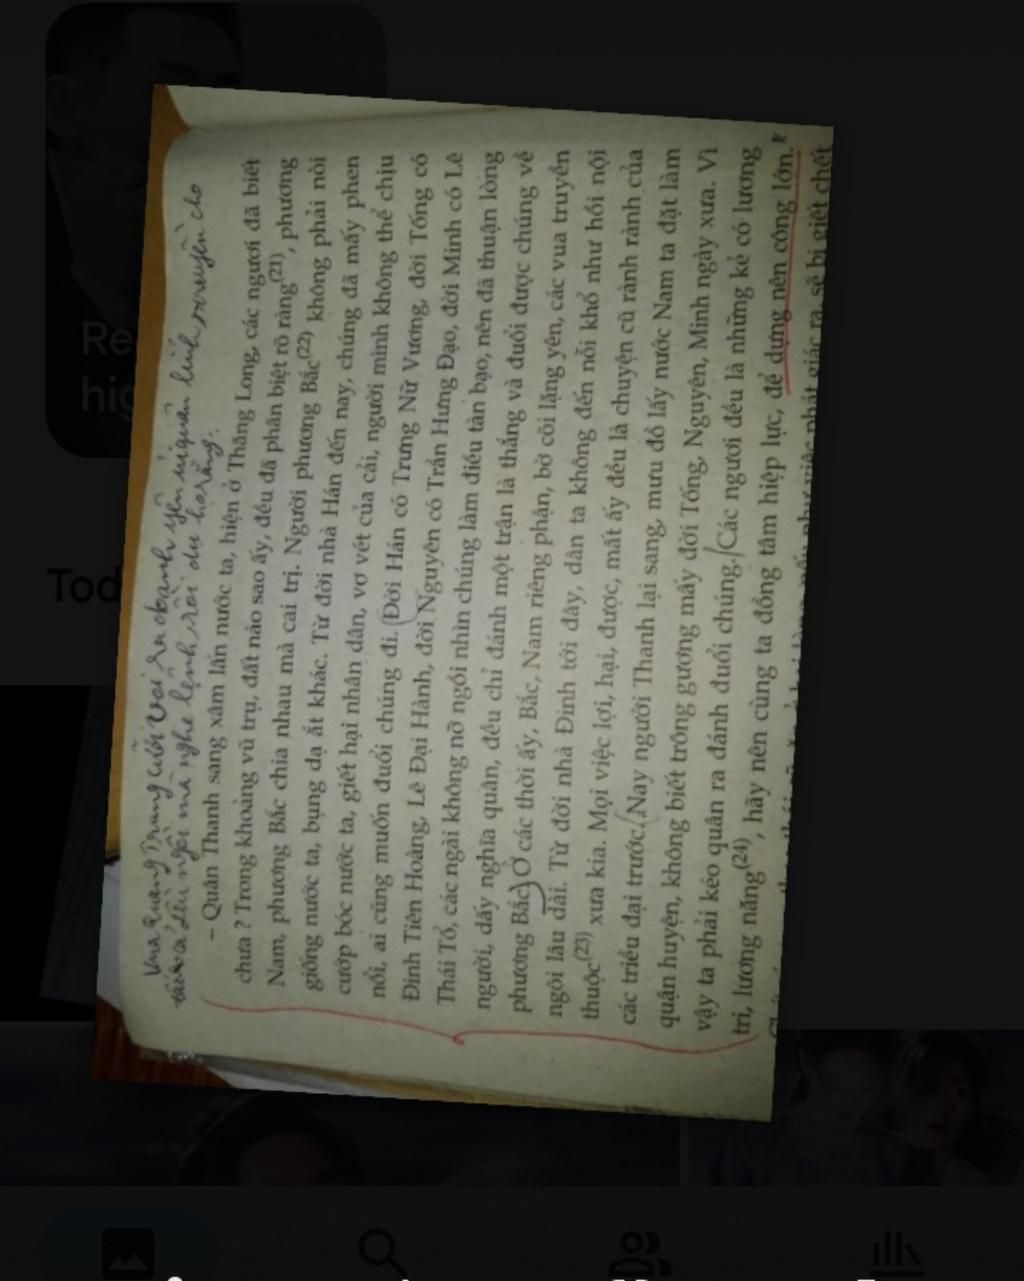 Re
hig
Tod
Vua Quang Trung cưỡi voi ra doanh yên ủi quân lính, truyền cho
tất cả đều ngồi mà nghe lệnh, rồi dụ họ rằng:
– Quân Thanh sang xâm lấn nước ta, hiện ở Thăng Long, các ngươi đã biết
chưa ? Trong khoảng vũ trụ, đất nào sao ấy, đều đã phân biệt rõ ràng(21), phương
Nam, phương Bắc chia nhau mà cai trị. Người phương Bắc(22) không phải nòi
giống nước ta, bụng dạ ắt khác. Từ đời nhà Hán đến nay, chúng đã mấy phen
cướp bóc nước ta, giết hại nhân dân, vơ vét của cải, người mình không thể chịu
nổi, ai cũng muốn đuổi chúng đi. Đời Hán có Trưng Nữ Vương, đời Tống có
Đinh Tiên Hoàng, Lê Đại Hành, đời Nguyên có Trần Hưng Đạo, đời Minh có Lê
Thái Tổ, các ngài không nỡ ngồi nhìn chúng làm điều tàn bạo, nên đã thuận lòng
người, dấy nghĩa quân, đều chỉ đánh một trận là thắng và đuổi được chúng về
phương Bắc. Ở các thời ấy, Bắc, Nam riêng phận, bờ cõi lặng yên, các vua truyền
ngôi lâu dài. Từ đời nhà Đinh tới đây, dân ta không đến nỗi khổ như hồi nội
thuộc(23) xưa kia. Mọi việc lợi, hại, được, mất ấy đều là chuyện cũ rành rành của
các triều đại trước. Nay người Thanh lại sang, mưu đồ lấy nước Nam ta đặt làm
quận huyện, không biết trông gương mấy đời Tống, Nguyên, Minh ngày xưa. Vì
vậy ta phải kéo quân ra đánh đuổi chúng. Các ngươi đều là những kẻ có lương
tri, lương năng(24), hãy nên cùng ta đồng tâm hiệp lực, để dựng nên công lớn.
việc phát giác ra, sẽ bị giết chết